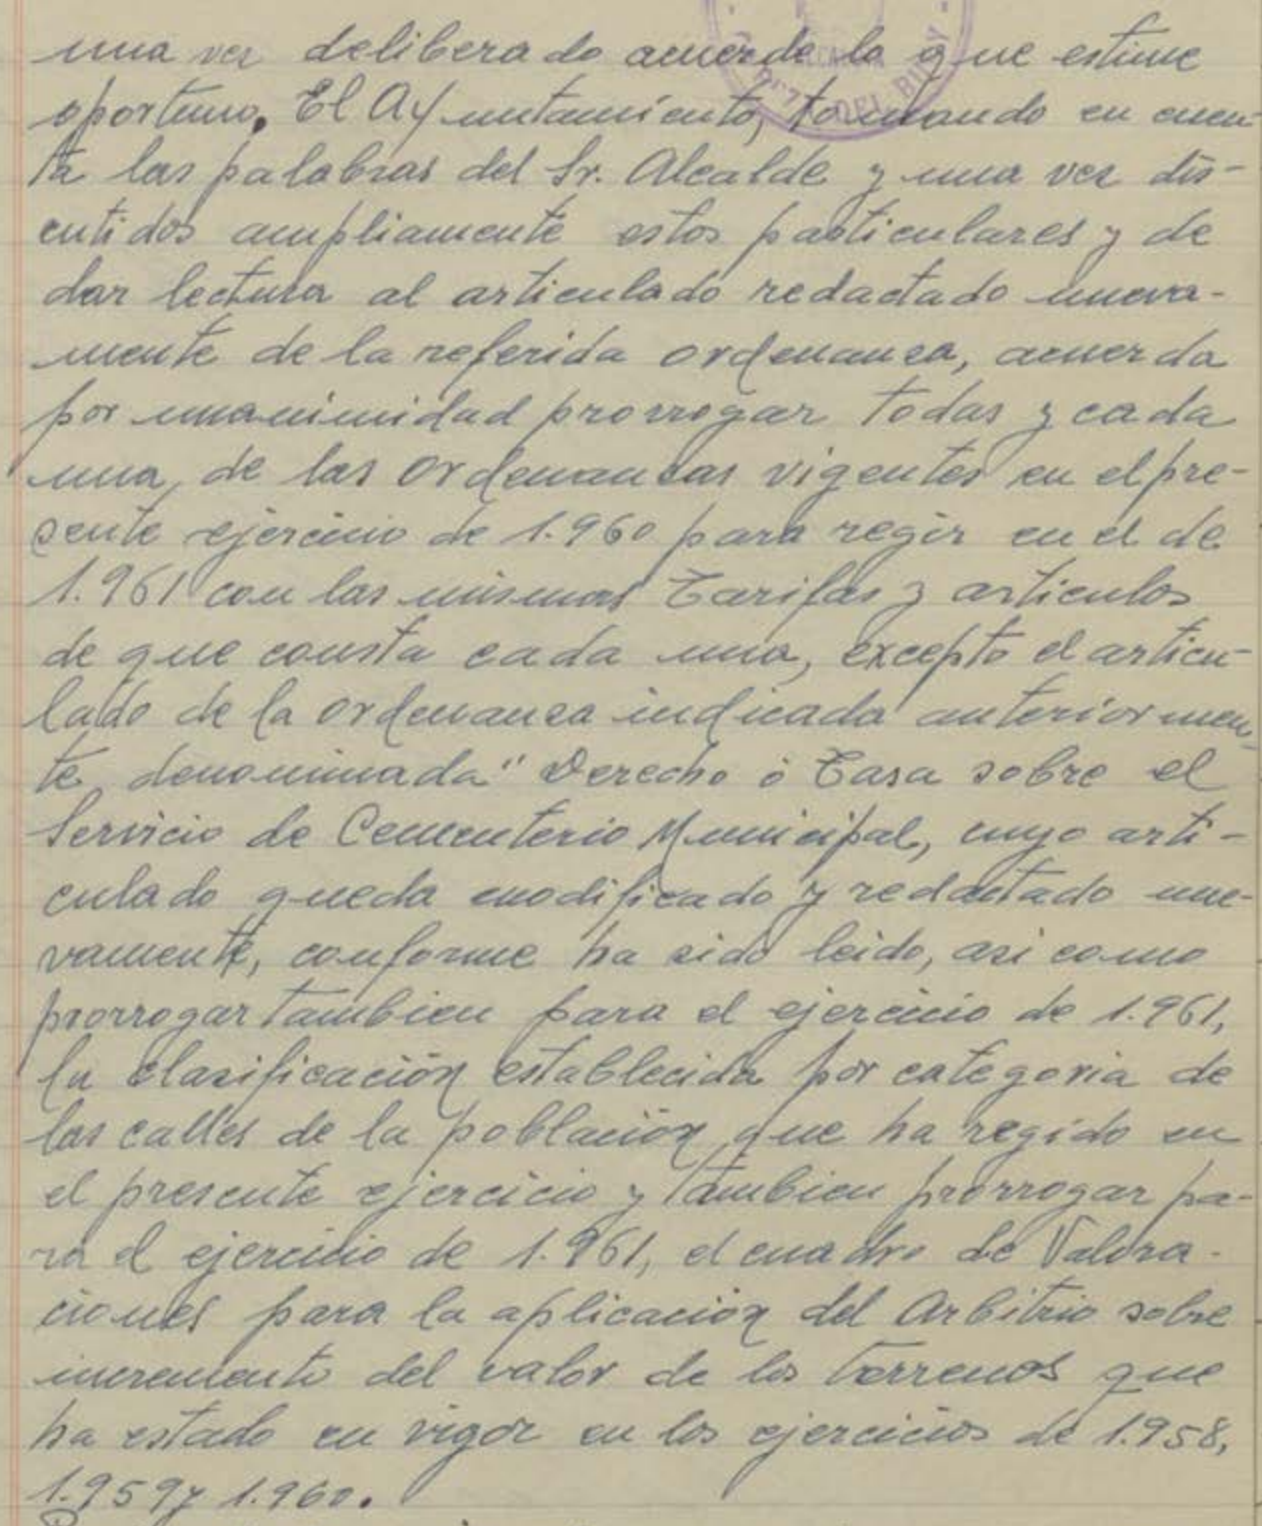 una vez deliberado acuerde lo que estime
oportuno. El Ayuntamiento, tomando en cuen-
ta las palabras del Sr. Alcalde y una vez dis-
cutidos ampliamente estos particulares y de
dar lectura al articulado redactado nueva-
mente de la referida ordenanza, acuerda
por unanimidad prorrogar todas y cada
una, de las ordenanzas vigentes en el pre-
sente ejercicio de 1.960 para regir en el de
1.961 con las mismas Tarifas y articulos
de que consta cada una, excepto el articu-
lado de la ordenanza indicada anteriormen-
te, denominada "Derecho ó Tasa sobre el
Servicio de Cementerio Municipal, cuyo arti-
culado queda modificado y redactado nue-
vamente, conforme ha sido leido, asi como
prorrogar tambien para el ejercicio de 1.961,
la clasificación establecida por categoria de
las calles de la población, que ha regido en
el presente ejercicio y tambien prorrogar pa-
ra el ejercicio de 1.961, el cuadro de Valora-
ciones para la aplicación del Arbitrio sobre
incremento del valor de los terrenos que
ha estado en vigor en los ejercicios de 1.958,
1.959 y 1.960.